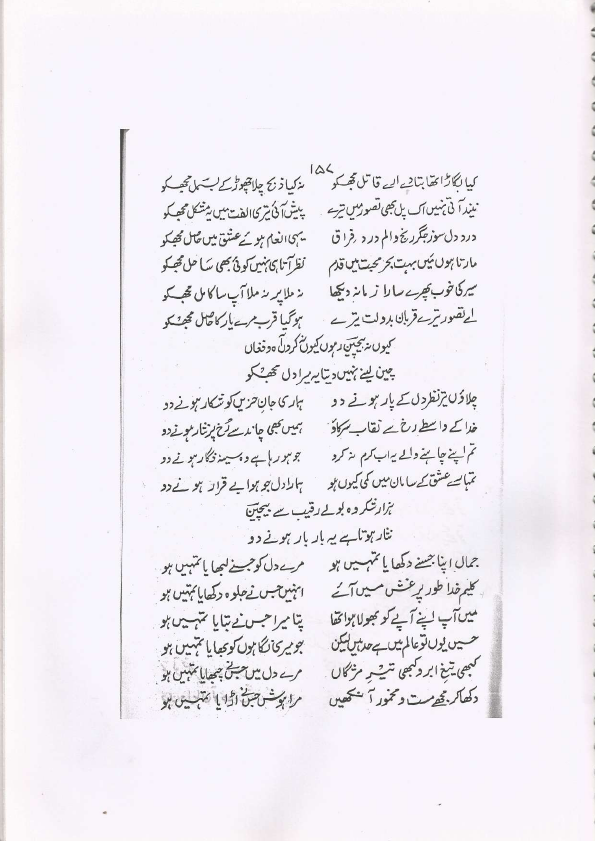 ۱۵۷
کیا بگاڑا تھا بتا دے اے قاتل مجھکو نہ کیا ذبح چلا چھوڑ کے بسمل مجھکو
نیند آتی نہیں اک پل بھی تصور میں ترے پیش آئی تری الفت میں یہ مشکل مجھکو
درد دل سوز جگر رنج و الم درد فراق یہی انعام ہوئے عشق میں حاصل مجھکو
مارتا ہوں میں بہت بحر محبت میں قدم نظر آتا ہی نہیں کوئی بھی ساحل مجھکو
سیری خوب پھرے سارا زمانہ دیکھا نہ ملا پر نہ ملا آپ سا کامل مجھکو
اے تصور ترے قربان بدولت تیرے ہو گیا قرب مرے یار کا حاصل مجھکو
کیوں نہ بیچین رہوں کیوں نہ کروں آہ و فغاں
چین لینے نہیں دیتا یہ میرا دل مجھکو
چلاؤ تیر نظر دل کے پار ہونے دو ہماری جان حزیں کو شکار ہونے دو
خدا کے واسطے رخ سے نقاب سرکاؤ ہمیں بھی چاند سے رخ پر نثار ہونے دو
تم اپنے چاہنے والے پہ اب کرم نہ کرو جو ہو رہا ہے وہ سینہ فگار ہونے دو
تمہاسے عشق کے سامان میں کمی کیوں ہو ہمارا دل جو ہوا بے قرار ہونے دو
ہزار شکر وہ بولے رقیب سے بیچین
نثار ہوتا ہے یہ بار بار ہونے دو
جمال اپنا جسنے دکھایا تمہیں ہو مرے دل کو جسنے لبھایا تمہیں ہو
کلیم خدا طور پر غش میں آئے انہیں جس نے جلوہ دکھایا تمہیں ہو
میں آپ اپنے آپے کو بھولا ہوا تھا پتا میرا جس نے بتایا تمہیں ہو
حسیں یوں تو عالم میں بے حد ہیں لیکن جو میری نگاہوں کو بھایا تمہیں ہو
کبھی تیغ ابرو کبھی تیر مژگاں مرے دل میں جسنے چبھایا تمہیں ہو
دکھا کر مجھے مست و مخمور آنکھیں مرا ہوش جسنے اڑایا تمہیں ہو